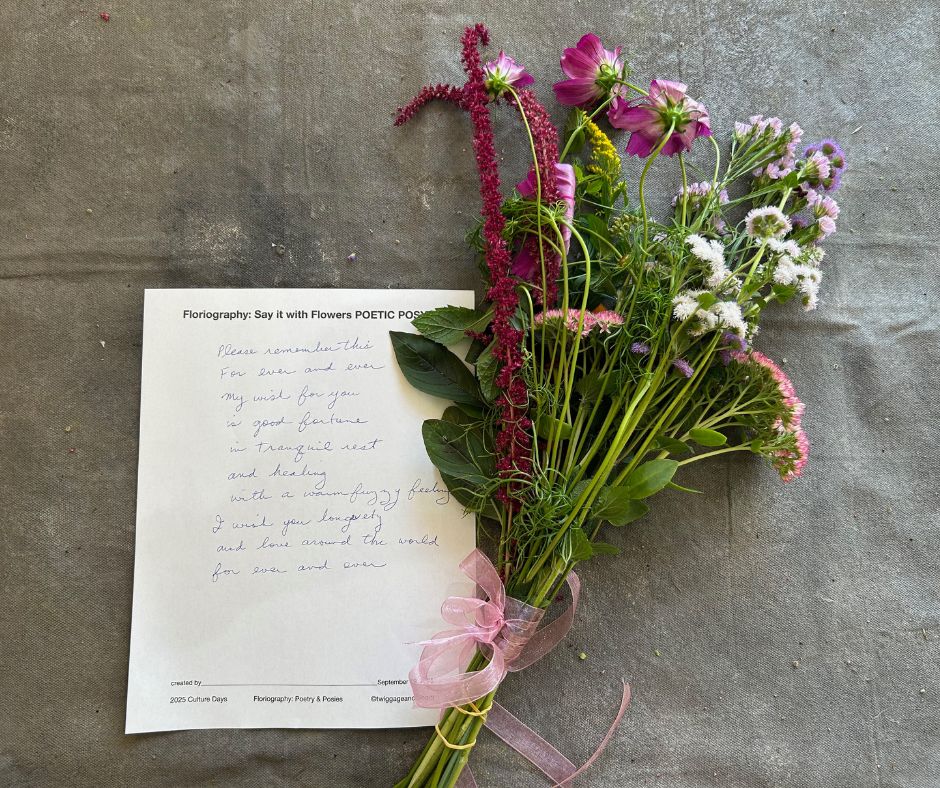 Floriography: Say it with Flowers POETIC POSY
Please remember this
For ever and ever
My wish for you
is good fortune
in tranquil rest
and healing
with a warm fuzzy feeling
I wish you longevety
and love around the world
for ever and ever
created by September
2025 Culture Days Floriography: Poetry & Posies